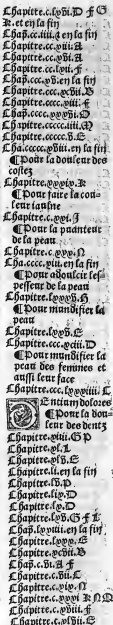 Chapitre.c.lvi.D F G
K. et en la fin
Chap.cc.iiii. & en la fin
Chapitre.cc.viii.A
Chapitre.cc.vi.A
Chapitre.cc.lvii.F
Chap.ccc.xv. en la fin
Chapitre.ccc.xcvii.B
Chapitre.cccc.viii.F
Chap.cccc.xxvi.D
Chapitre.cccc.liiii.M
Chapitre.ccccc.v.E
Cha.ccccc.xviii. en la fin
¶ Pour la douleur des
costez
Chapitre.xxxix.K
¶ Pour faire la cou
leur iaulne
Chapitre.c.xxi.I
¶ Pour la puanteur
de la peau
Chapitre.c.xxx.N
Cha.cccc.xiii. en la fin
¶ Pour adoulcir les
pesseur de la peau
Chapitre.lxxxv.H
¶ Pour mundifier la
peau
Chapitre.lxxv.E
Chapitre.ccc.xciii.D
¶ Pour mundifier la
peau des femmes et
aussi leur face
Chapitre.ccc.lxxxiiii.C
Dentium dolores
¶ Pour la dou
leur des dentz
Chapitre.xiii.G P
Chapitre.xl.L
Chapitre.xlv.E
Chapitre.li. en la fin
Chapitre.lv.P
Chapitre.lix.D
Chapitre.lx.D
Chapitre.lxv.G F L
Chap.lxviii. en la fin
Chapitre.lxxx.E
Chapitre.xcvii.B
Chap.c.vi.A F
Chapitre.c.vii.C
Chapitre.c.xix.N
Chapitre.c.xxxi K N Q
Chapitre.c.xliii.F
Chapitre.c.xlvii.E